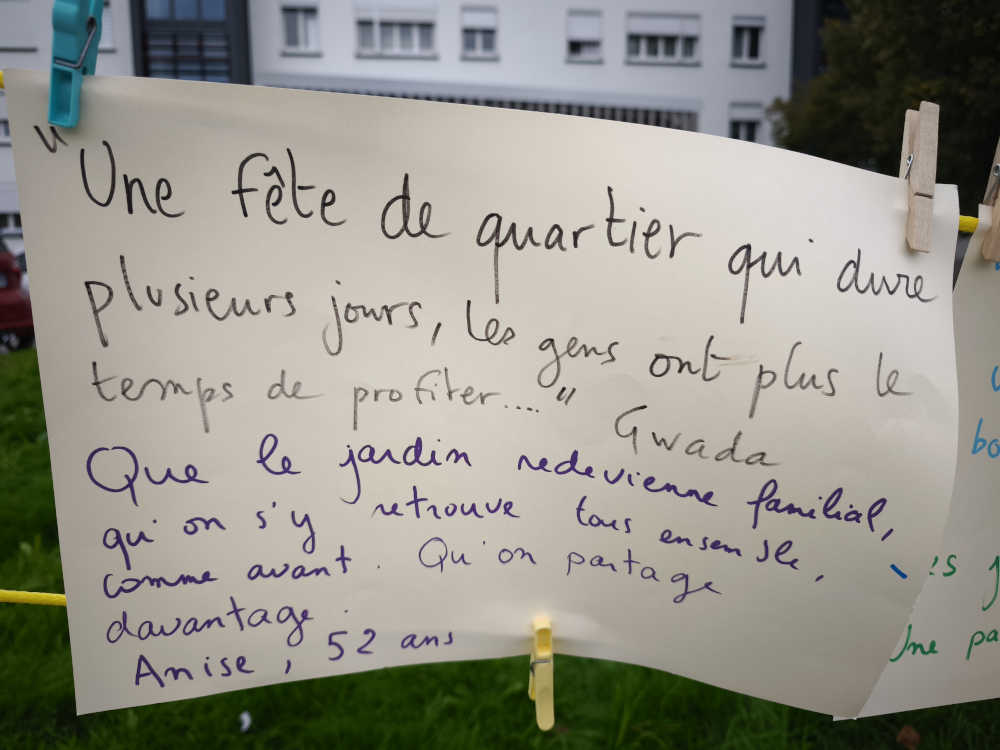 "Une fête de quartier qui dure
plusieurs jours, les gens ont plus le
temps de profiter...."
Gwada
Que le jardin redevienne familial,
qu'on s'y retrouve tous ensemble,
comme avant. Qu'on partage
davantage.
Anise, 52 ans
bo
es j
Une pa